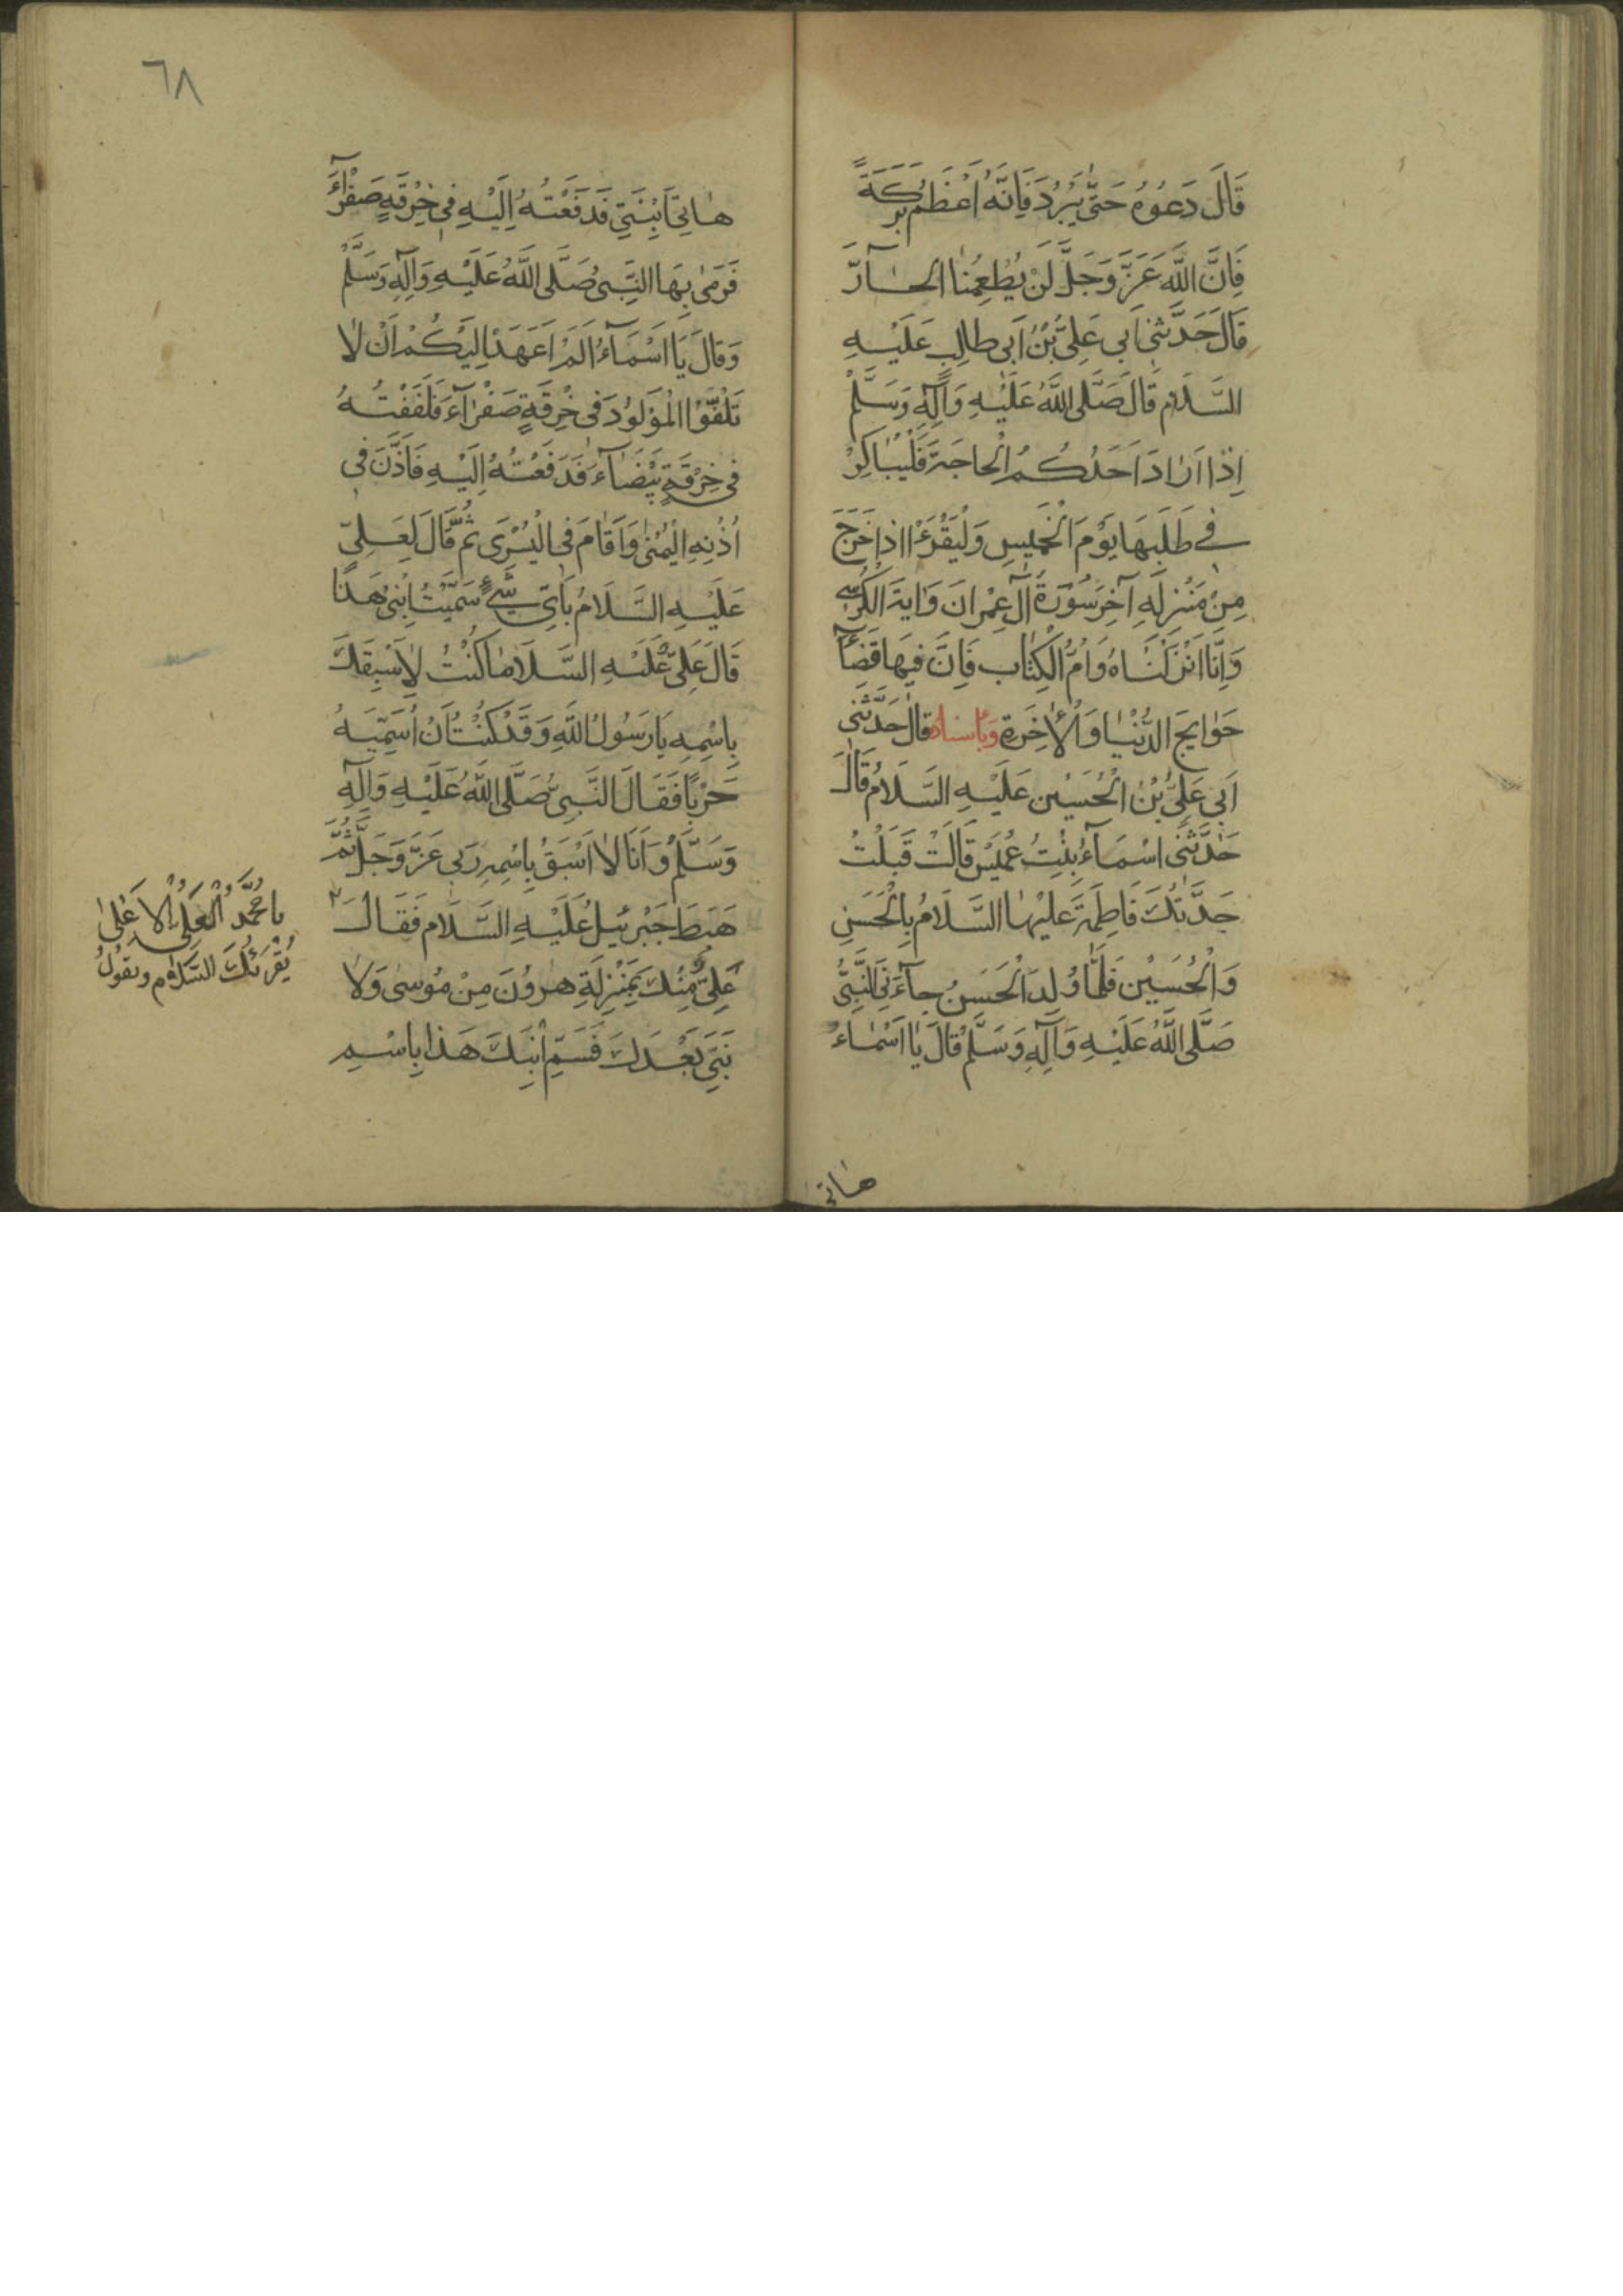 قَالَ دَعُوُهُ حَتّٰى يَبْرُدَ فَاِنَّهُ اَعْظَمُ بَرَكَةً
فَاِنَّ اللّٰهَ عَزَّ وَجَلَّ لَنْ يُطْعِمُنَا الحَآرَّ
قَالَ حَدَّثَنِى اَبى عَلِىُّ بْنُ اَبى طالِبٍ عَلَيْهِ
السَّلَامُ قَالَ صَلَّى اللّٰهُ عَلَيْهِ وَآلِهِ وَسَلَّمْ
اِذَا اَرَادَ اَحَدُكُمُ الْحاجَةَ فَلْيُبَاكِرْ
فى طَلَبِهَا يَوْمَ الْخَمِيسِ وَلْيَقْرَءْ اِذاخَرَجَ
مِنْ مَنْزِلِهِ آخِرَ سُوْرَةِ آلِ عِمْرانَ وَايَةَ الْكُرْسِى
وَاِنَّا اَنْزَلْنَاهُ وَاُمُّ الْكِتَابِ فَاِنَّ فيهَا قَضَآءَ
حَوَايِجَ الدُّنْيَا وَالْاٰخِرَةِ وَبِاسناده قالَ حَدَّثَنى
اَبى عَلِىُّ بْنُ الْحُسَيْنِ عَلَيْهِ السَّلَامُ قَالَ
حَدَّثَنى اَسْمَآءُ بِنْتُ عُمَيْسٍ قَالَتْ قَبِلْتُ
جَدَّتَكَ فَاطِمَةَ عَلَيْهَا السَّلَامُ بِالْحَسَنِ
وَالْحُسَيْنِ فَلَمَّا وُلِدَ الْحَسَنُ جآءَنِى النَّبِىُّ
صَلَّى اللّٰهُ عَلَيْهِ وَآلِهِ وَسَلَّمْ قَالَ يَا اَسْمَاءُ
هاتى
٦٨
هَاتِى ابْنَتى فَدَفَعْتُهُ اِلَيْهِ فى خِرْقَةٍ صَفْرَآءَ
فَرَمٰى بِهَا النَّبِىُّ صَلَّى اللّٰهُ عَلَيْهِ وَآلِهِ وَسَلَّمْ
وَقَالَ يَا اَسْمَآءُ اَلَمْ اَعْهَدْ اِلَيْكُمْ اَنْ لَا
تَلُفُّوْا الْمَوْلُودَ فى خِرْقَةٍ صَفْرَآءَ فَلَفَفْتُهُ
فى خِرْقَةٍ بَيْضَآءَ فَدَفَعْتُهُ اِلَيْهِ فَاَذَّنَ فى
اُذُنِهِ الْيُمْنٰى وَاَقَامَ فِى الْيُسْرٰى ثُمَّ قَالَ لِعَلِىٍّ
عَلَيْهِ السَّلَامُ بِاَىِّ شَىْءٍ سَمَّيْتَ ابْنِى هَذَا
قَالَ عَلِىٌّ عَلَيْهِ السَّلَامُ مَا كُنْتُ لِاَسْبِقَكَ
بِاسْمِهِ يَا رَسُولَ اللّٰهِ وَقَدْ كُنْتُ اَنْ اُسَمِّيَهُ
حَرْبًا فَقَالَ النَّبِىُّ صَلَّى اللّٰهُ عَلَيْهِ وَآلِهِ
وَسَلَّمْ وَاَنَا لَا اَسْبَقُ بِاسْمِهِ رَبى عَزَّ وَجَلَّ ثُمَّ
هَبَطَ جَبْرَئيلُ عَلَيْهِ السَّلَامُ فَقَالَ
عَلِىٌّ مِنْكَ بِمَنْزِلَةِ هٰرُونَ مِنْ مُوسٰى وَلَا
نَبِىَّ بَعْدَكَ فَسَمِّ ابْنَكَ هَذَا بِاسْمِ
يا مُحَمَّدُ الْعَلِىُّ الْاَعْلٰى
يُقْرِئُكَ السَّلَامَ ويقولُ